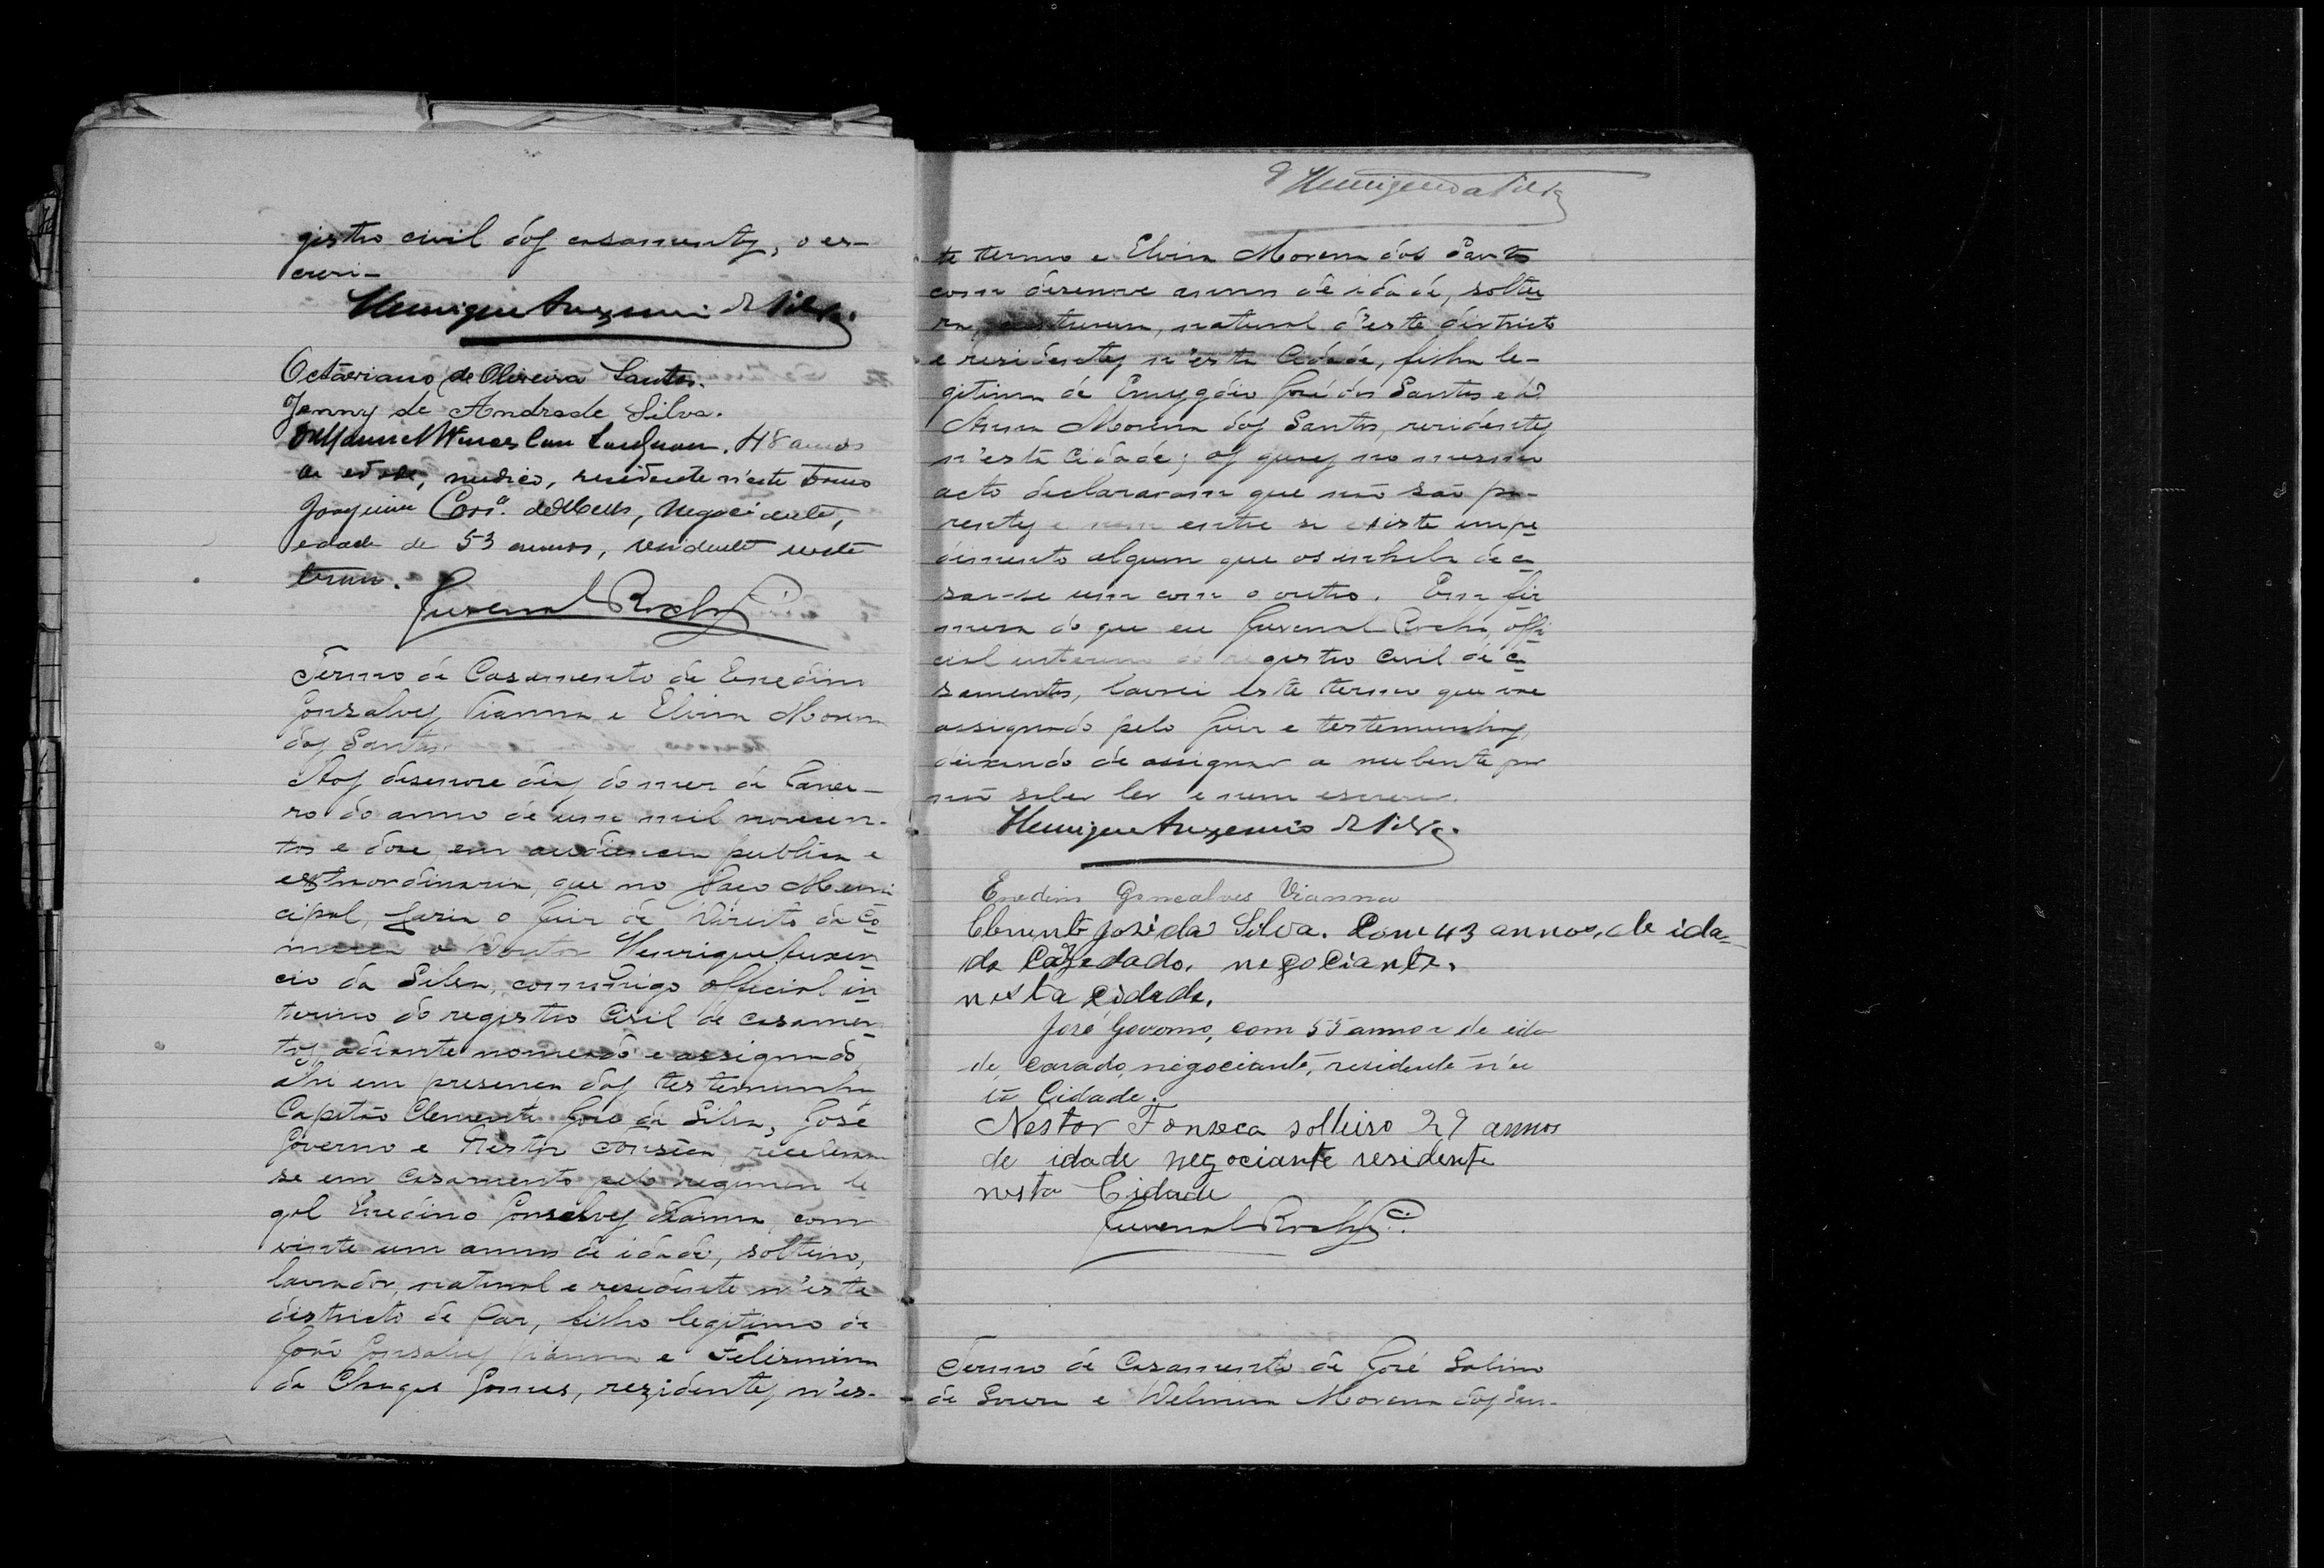 gistro civil dos casamentos, o es-
crevi-
Henrique Auxencio da Silva.
Octaviano de Oliveira Santos.
Jenny de Andrade Silva.
Manuel Wenceslau 48 annos
de edade, medico, residente n'este termo
Joaquim Corrª. de Mello, Negociante,
edade de 53 annos, residente neste
termo.
Juvenal Rocha
Termo de Casamento de Enedino
Gonsalves Vianna e Elvira Morena
dos Santos
Aos desenove dias do mez de Janei-
ro do anno de um mil novecen-
tos e doze, em audiencia publica e
extraordinaria, que no Paço Muni
cipal, fazia o Juiz de Direito da Co
marca o Doutor Henrique Auxen
cio da Silva, commigo official in
terino do registro Civil de casamen
tos, adiante nomeado e assignado,
ahi em presença das testemunhas
Capitão Clemente José da Silva, José
Governo e Nestor Fonseca, receberam
se em casamento pelo regimen le
gal Enedino Gonsalves Vianna, com
vinte um annos de idade, solteiro,
lavrador, natural e residente n'este
districto de Paz, filho legitimo de
José Gonsalves Vianna e Felismina
da Chagas Gomes, rezidentes n'es-
Henrique da Silva
te termo e Elvira Morena dos Santos
com desenove annos de idade, soltei
ra, costureira, natural d'este districto
e residentes n'esta Cidade, filha le-
gitima de Emygdio José dos Santos e D.
Anna Morena dos Santos, residentes
n'esta Cidade; os quaes no mesmo
acto declararam que não são pa-
rentes e nem entre si existe impe
dimento algum que os inhiba de ca
sar-se um com o outro. Em fir
meza do que eu Juvenal Rocha, offi
cial interino do registro Civil de ca
samentos, lavrei este termo que vae
assignado pelo Juiz e testemunhas,
deixando de assignar a nubente por
não saber ler e nem escrever.
Henrique Auxencio da Silva.
Enedino Gonçalves Vianna
Clemente José da Silva. Com 43 annos, de ida-
de Cazedado. negociante.
nesta cidade.
José Governo, com 55 annos de ida
de, casado, negociante, residente n'es
ta Cidade.
Nestor Fonseca solteiro 29 annos
de idade negociante residente
nesta Cidade
Juvenal Rocha
Termo de Casamento de José Sabino
de Souza e Morena dos San-